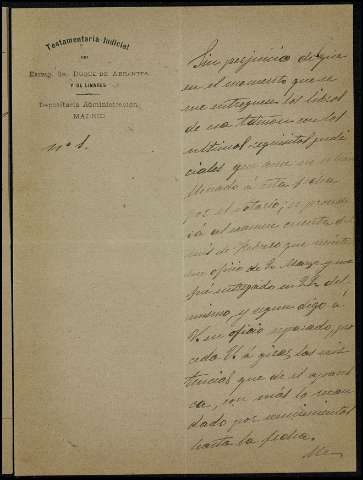 Testamentaría Judicial
DEL
Excmo. Sr. Duque de Abrantes
Y DE LINARES
Depositaría Administración
MADRID
nº 1.
Sin perjuicio de que
en el momento que se
me entreguen los libros
de esa Admon con los
últimos requisitos judi
ciales que
á esta fecha
por el notario, se procede
rá al examen cuenta d
mes de Febrero que remite
su oficio de 2 Marzo y me
fué entregado en 22 del
mismo, y según digo á
V. en oficio separado, pro
ceda V. á girar las exis
tencias que de él aparez
ca, con más lo recau
dado por vencimientos
hasta la fecha.